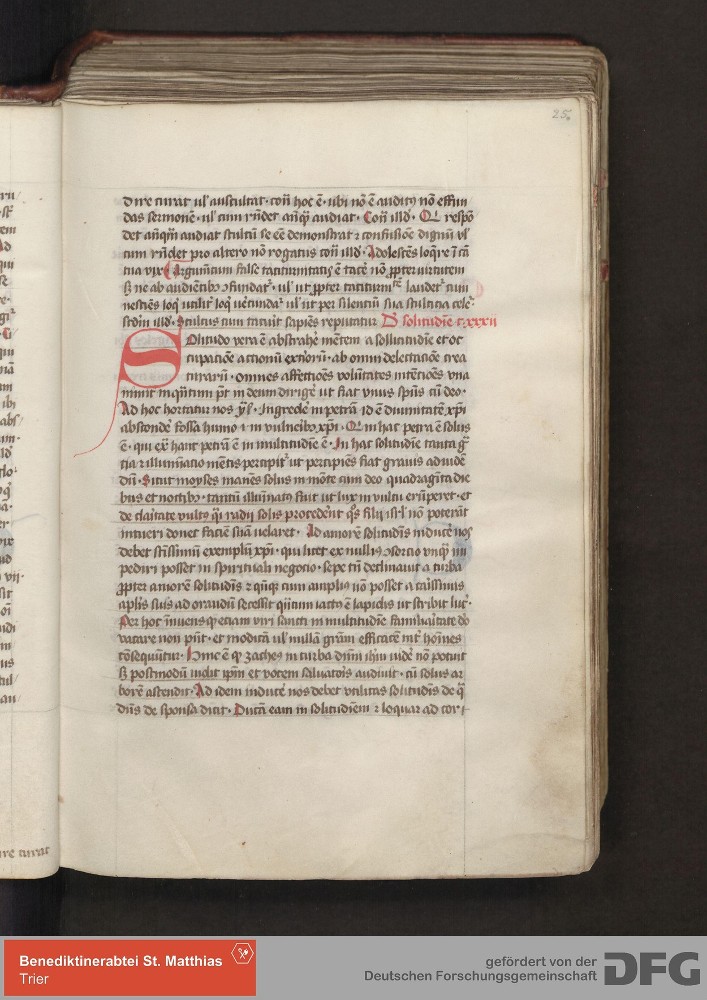 25.
dire curat ul' auscultat · con̄ hoc ē · ubi nō ē auditꝰ nō effun
das sermonē · ul' cum rn̄det anq̄ͣ audiat · Con̄ illd' · Qi respō
det anq̄ͣm audiat stultū se eē demonstrat ⁊ confusiōe dignū ul'
cum rn̄det pro altero nō rogatus con̄ illd' · Adolescēs loq̄re ī cā
tua vix · Argumētum false taciturnitatis ē tacē nō ꝓpter uirtutem
sꝫ ne ab audiētibꝰ ꝯfundat᷑ · ul' ut ꝓpter taciturnitatē laudet᷑ cum
nesciēs loq̄ utilit᷑ loq̄ uerēcundat᷑ ul' ut per silentiū sua stulticia cele᷑
scdm illd' · Stultus cum tacuit sapiēs reputatur De solitudīe c. xxxii
Solitudo vera ē abstrahē mētem a sollicitudīe et oc
cupaciōe actionū exteriorū · ab omni delectaciōe crea
turarū · omnes affectiōes volūtates intēciōes vna
niniit inquātum pt᷑ in deum dirigē ut fiat vnus spūs cū deo ·
Ad hoc hortatur nos ys̄ · Ingredē in petrā id ē diuinitatē xp̄i
abscondē fossa humo ī in vulneribꝰ xp̄i · Qi in hac petra ē solus
ē · qui ex̄ hanc petrā ē in multitudīe ē · In hac solitudīe tanta gr̄
cia ⁊ illuminatio mētis percipit᷑ ut percipiēs fiat grauis ad uidē
dū · Sicut moyses manēs solus in mōte cum deo quadragīta die
bus et noctibꝰ · tantū illuminatꝰ fuit ut lux in vultu erūperet · et
de claritate vultꝰ q̄i radii solis procederēt q̄s filii isrl' nō poterāt
intueri donec faciē suā uelaret · Ad amorē solitudīs inducē nos
debet scissimū exemplū xp̄i · qui licet ex nullis ꝯsortio vnq̄ͣ im
pediri posset in spirituali negocio · sepe tn̄ declinauit a turba
ꝓpter amorē solitudīs ⁊ qn̄q̨ cum amplius nō posset a carissimis
aplīs suis ad orandū secessit q̄ntum iactꝰ ē lapidis ut scribit luc᷑
Per hoc innuens q̨ etiam viri sancti in multitudīe familiaritate do
vacare non pn̄t · et modicā ul' nullā grām efficacē int᷑ hoīnes
cōsequūntur · Hinc ē q̨ zacheꝰ in turba dn̄m ihm uidē nō potuit
sꝫ postmodū uidit ip̄m et vocem saluatoris audiuit · cū solus ar
borē ascendit · Ad idem inducē nos debet vtilitas solitudīs de q̄
dn̄s de sponsa dicit · Ducā eam in solitudīem ⁊ loquar ad cor i
Benediktinerabtei St. Matthias
Trier
gefördert von der
Deutschen Forschungsgemeinschaft
DFG